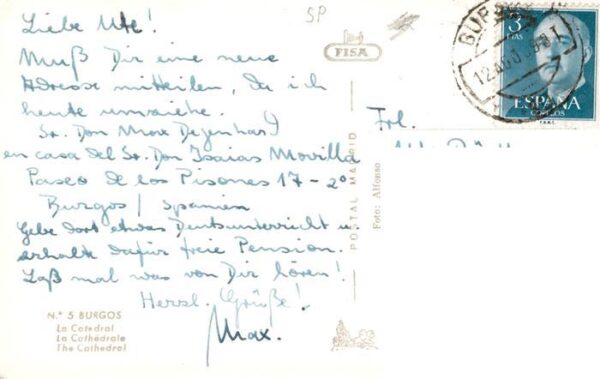 Liebe Ute!
Muß Dir eine neue
Adresse mitteilen, da ich
heute umziehe.
Sr. Don Max Degenhard
en casa del Sr. Don Isaias Movilla
Paseo de los Pisones 17 - 2º
Burgos / Spanien
Gebe dort etwas Deutsunterricht u.
erhalte dafür freie Pension.
Laß mal was von Dir hören!
Herzl. Grüße!
Max.
Nº 5 BURGOS
La Catedral
La Cathédrale
The Cathedral
SP
FISA
POSTAL MADRID
Foto: Alfonso
Frl.
3
PTAS
ESPAÑA
CORREOS